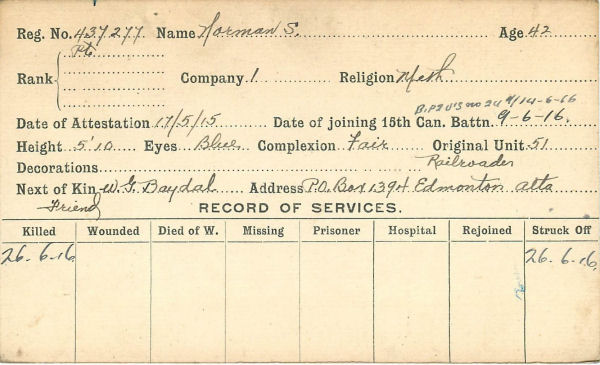 Reg. No. 437277 Name Norman S. Age 42
Pte
Rank Company 1 Religion Meth
14-6-66
Date of Attestation 17/5/15 Date of joining 15th Can. Battn. 9-6-16.
Height 5'10 Eyes Blue Complexion Fair Original Unit 51
Decorations Railroader
Next of Kin W. G. Baydal Address P.O. Box 1394 Edmonton Alta
Friend RECORD OF SERVICES.
Killed Wounded Died of W. Missing Prisoner Hospital Rejoined Struck Off
26.6.16. 26.6.16.